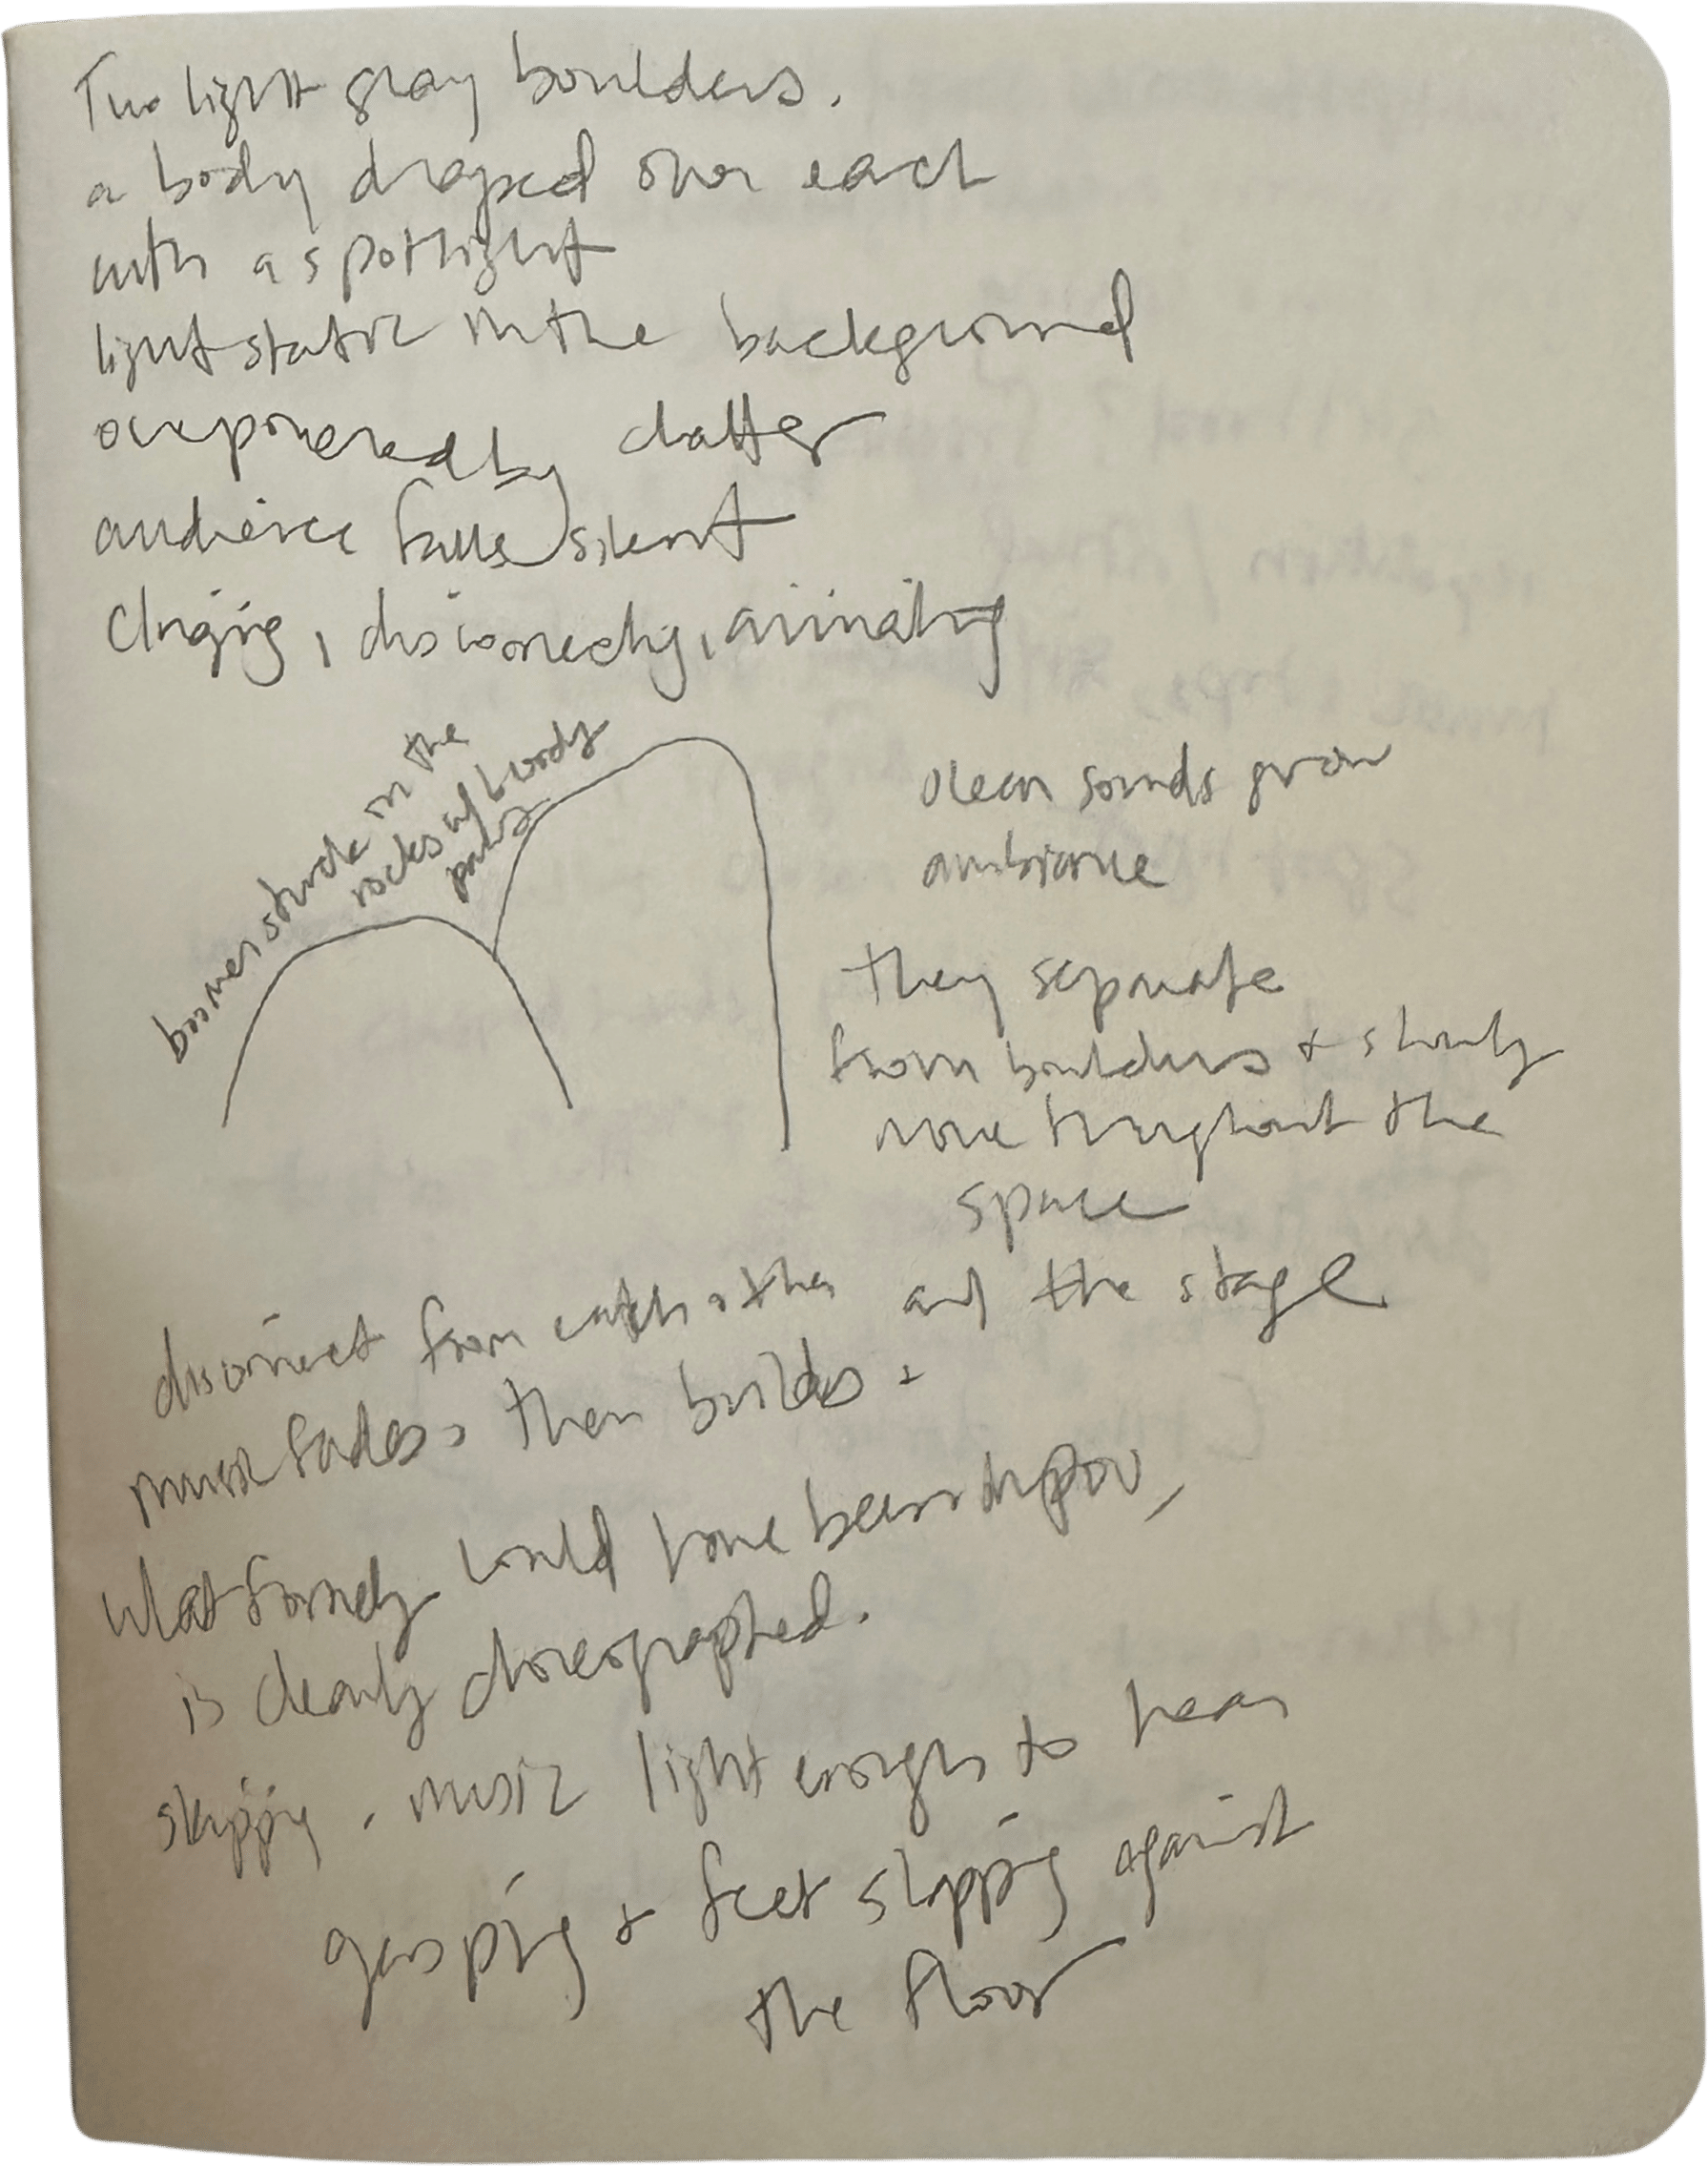 Two light gray boulders.
a body draped over each
with a spotlight
light static in the background
overpowered by chatter
audience falls silent
Clinging, disconnecting, animating
boomer stuck in the
rocks w/ bendy
ocean sounds grow
ambiance
they separate
from boulders + slowly
move throughout the
space
disconnect from each other and the stage
music fades, then builds.
What formerly could have been improv,
is clearly choreographed.
skipping. music light enough to hear
gasping + feet slapping against
the floor